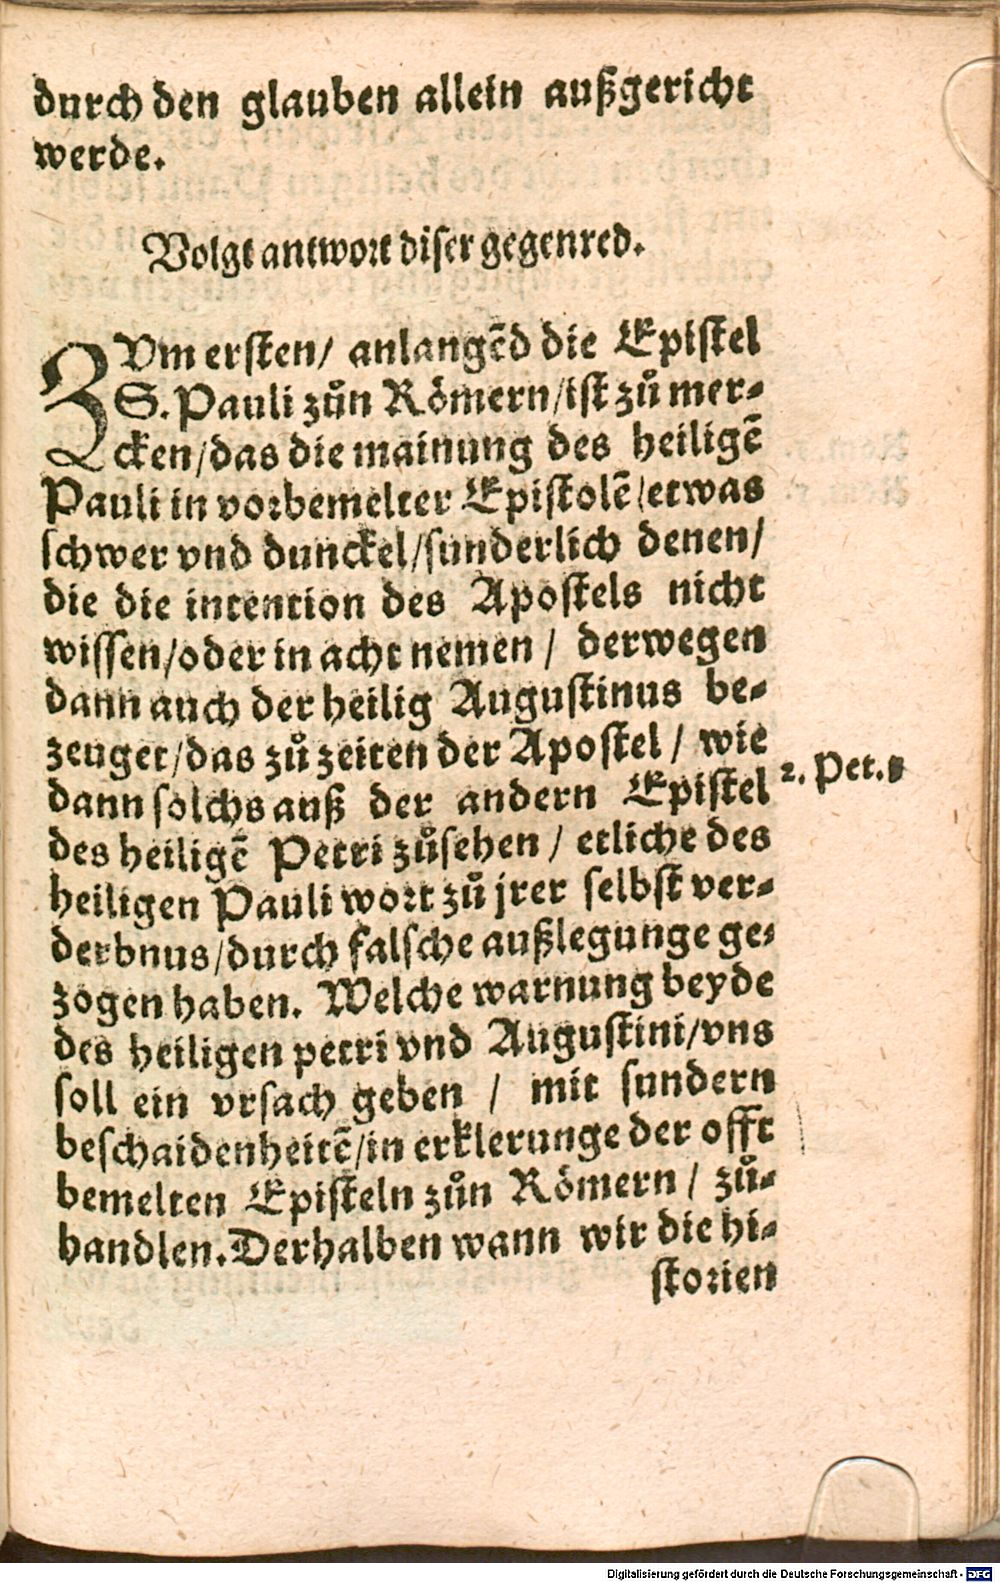 durch den glauben allein außgericht
werde.
Volgt antwort diser gegenred.
ZVm ersten/ anlangẽd die Epistel
S. Pauli zůn Römern/ist zů mer-
cken/das die mainung des heiligẽ
Pauli in vorbemelter Epistolẽ/etwas
schwer vnd dunckel/sunderlich denen/
die die intention des Apostels nicht
wissen/oder in acht nemen/ derwegen
dann auch der heilig Augustinus be-
zeuget/das zů zeiten der Apostel/ wie
dann solchs auß der andern Epistel
2. Pet.
des heiligẽ Petri zůsehen/ etliche des
heiligen Pauli wort zů jrer selbst ver-
derbnus/durch falsche außlegunge ge-
zogen haben. Welche warnung beyde
des heiligen petri vnd Augustini/vns
soll ein vrsach geben / mit sundern
beschaidenheitẽ/in erklerunge der offt
bemelten Episteln zůn Römern/ zů-
handlen. Derhalben wann wir die hi-
storien
Digitalisierung gefördert durch die Deutsche Forschungsgemeinschaft - DFG